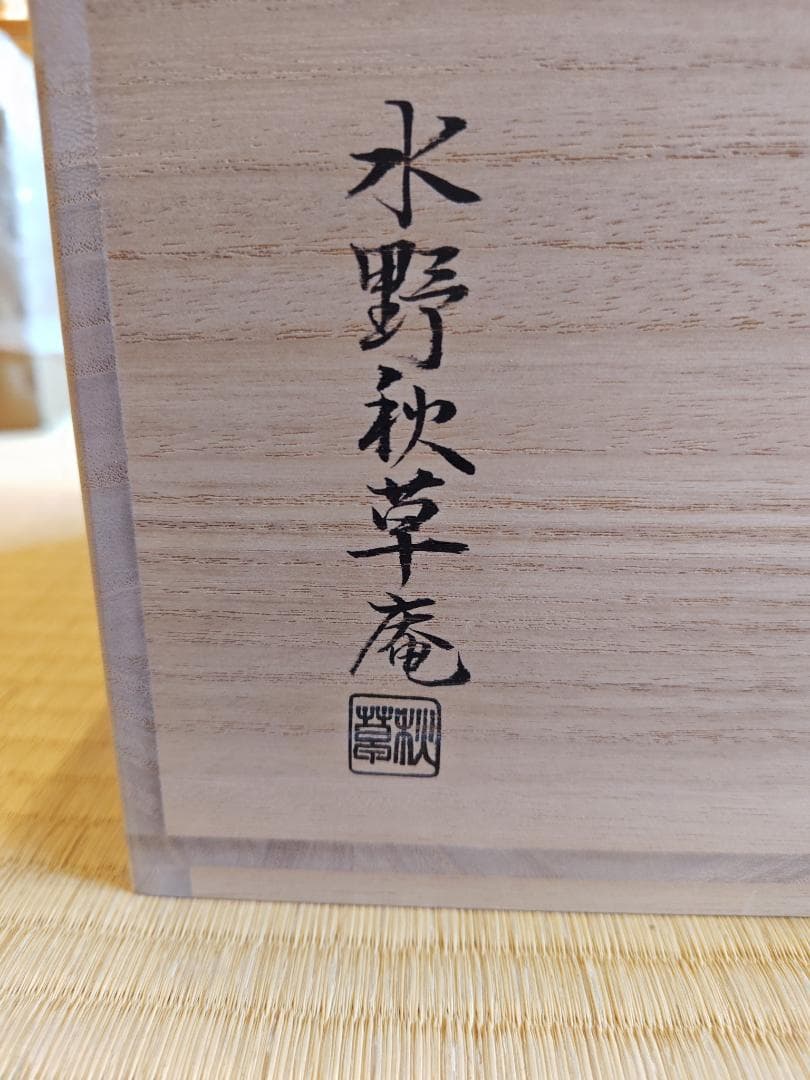 水野秋草庵
秋草